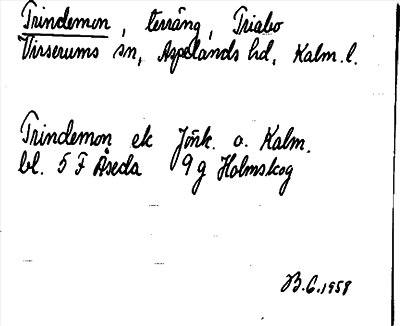 Trindemon, terräng, Triabo
Virserums sn, Aspelands hd, Kalm. l.
Trindemon ek Jönk. o. Kalm.
bl. 5 F Åseda 9 g Holmskog
B.G. 1958